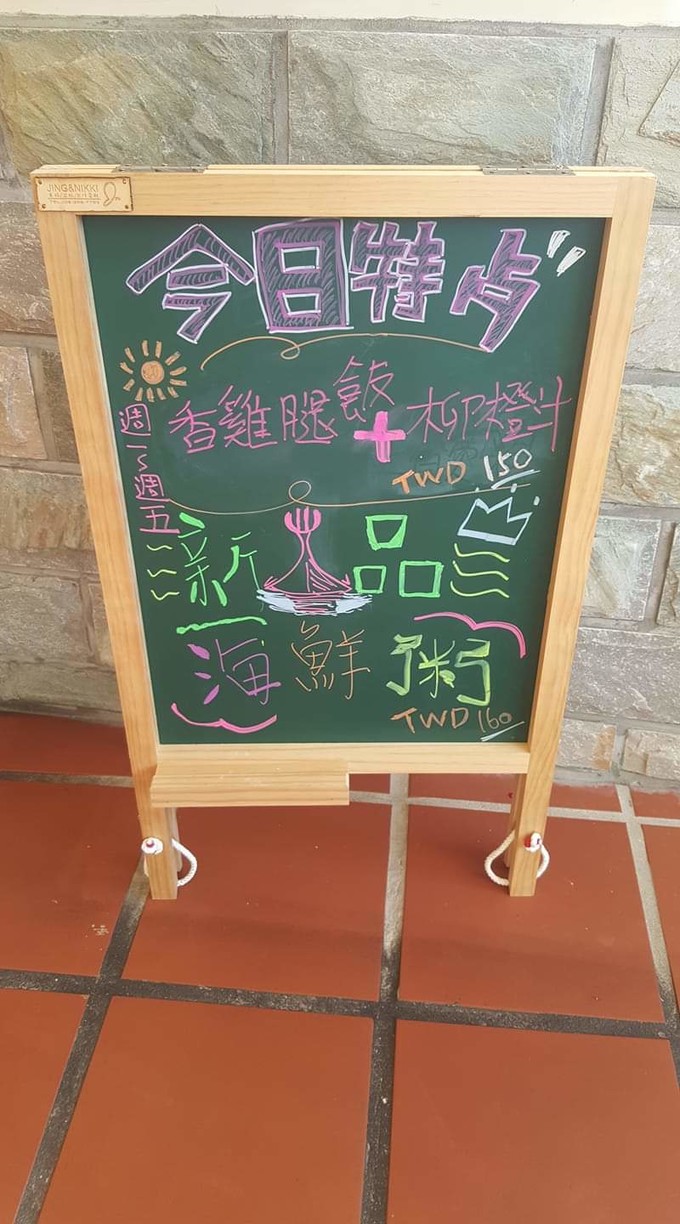 JING&NIKKI
今日特点
週一~週五
香雞腿飯+柳橙汁
TWD 150
新品
海鮮粥
TWD 160